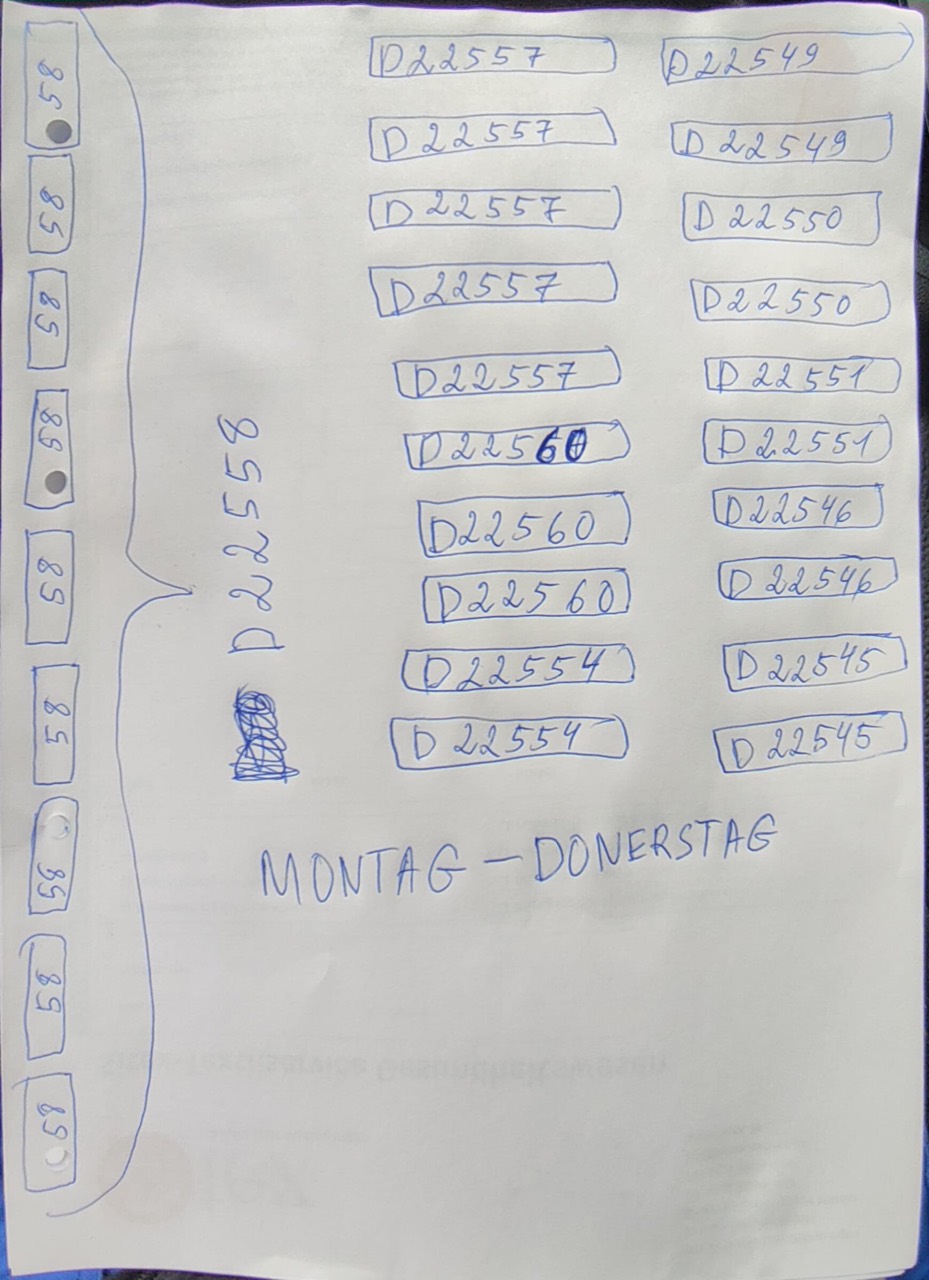 58
58
58
58
58
58
58
58
58
D22558
D22557 D22549
D22557 D22549
D22557 D22550
D22557 D22550
D22557 D22551
D22560 D22551
D22560 D22546
D22560 D22546
D22554 D22545
D22554 D22545
MONTAG – DONERSTAG